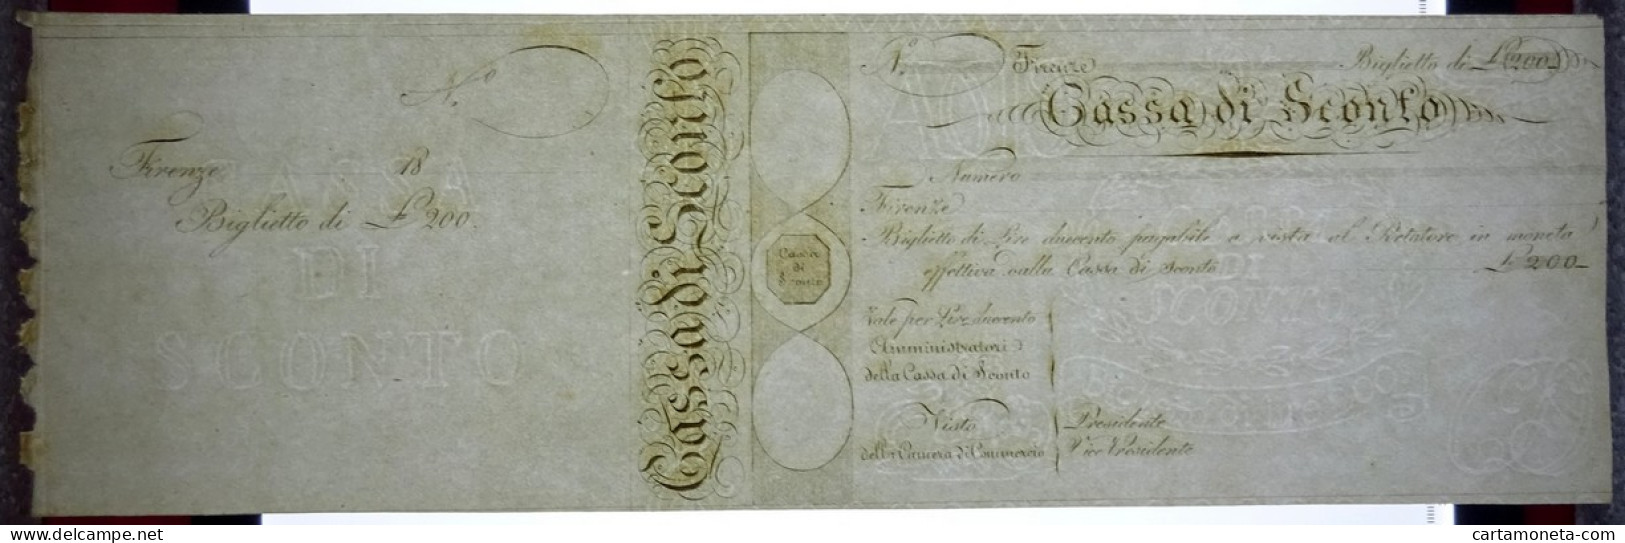 N.º
Firenze 18
Biglietto di £ 200.
CASSA
DI
SCONTO
Cassa di Sconto
Cassa
di
Sconto
N.º Firenze Biglietto di £ 200
Cassa di Sconto
Numero
Firenze
Biglietto di Lire duecento pagabile a vista al Portatore in moneta
effettiva dalla Cassa di Sconto £ 200
Vale per Lire duecento
Amministratori
della Cassa di Sconto
Visto
della Camera di Commercio
Presidente
Vice Presidente
DI
SCONTO
cartamoneta-com